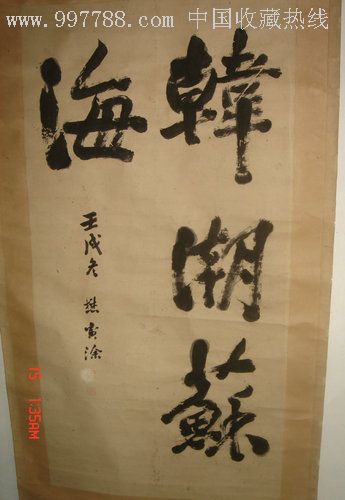 www.997788.com 中国收藏热线
韓潮蘇
海
壬戌冬 樊寅滌
15 1:35AM